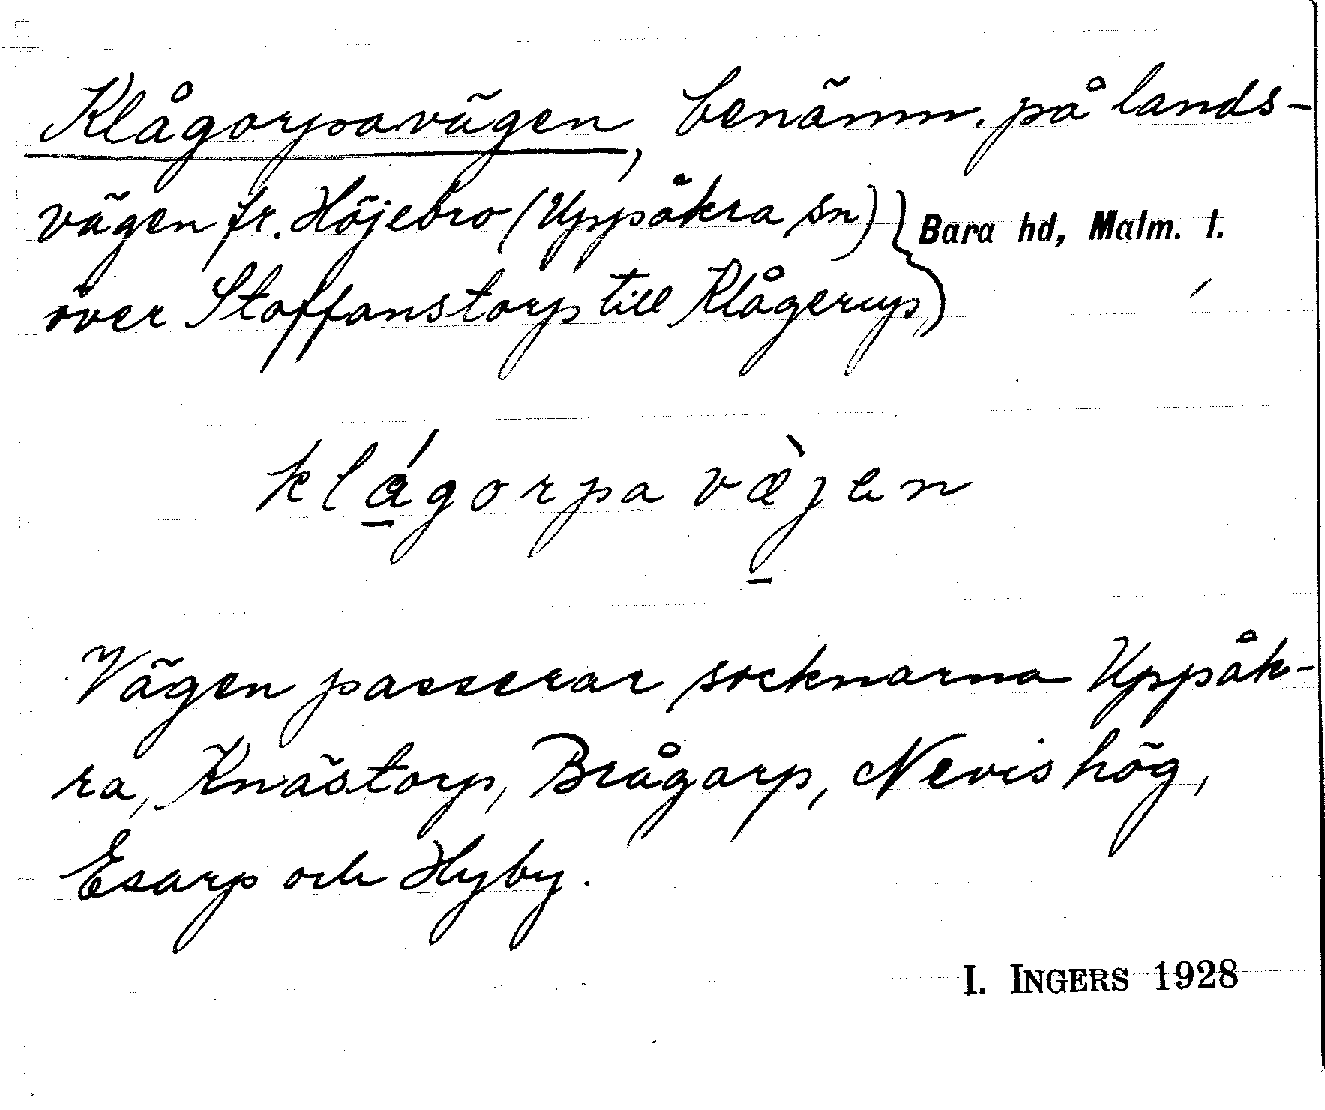 Klågorpavägen, benämn. på lands-
vägen fr. Höjebro (Uppåkra sn) } Bara hd, Malm. l.
över Staffanstorp till Klågerup)
klågorpa vӕ̀jen
Vägen passerar socknarna Uppåk-
ra, Knästorp, Brågarp, Nevishög,
Esarp och Hyby.
I. INGERS 1928